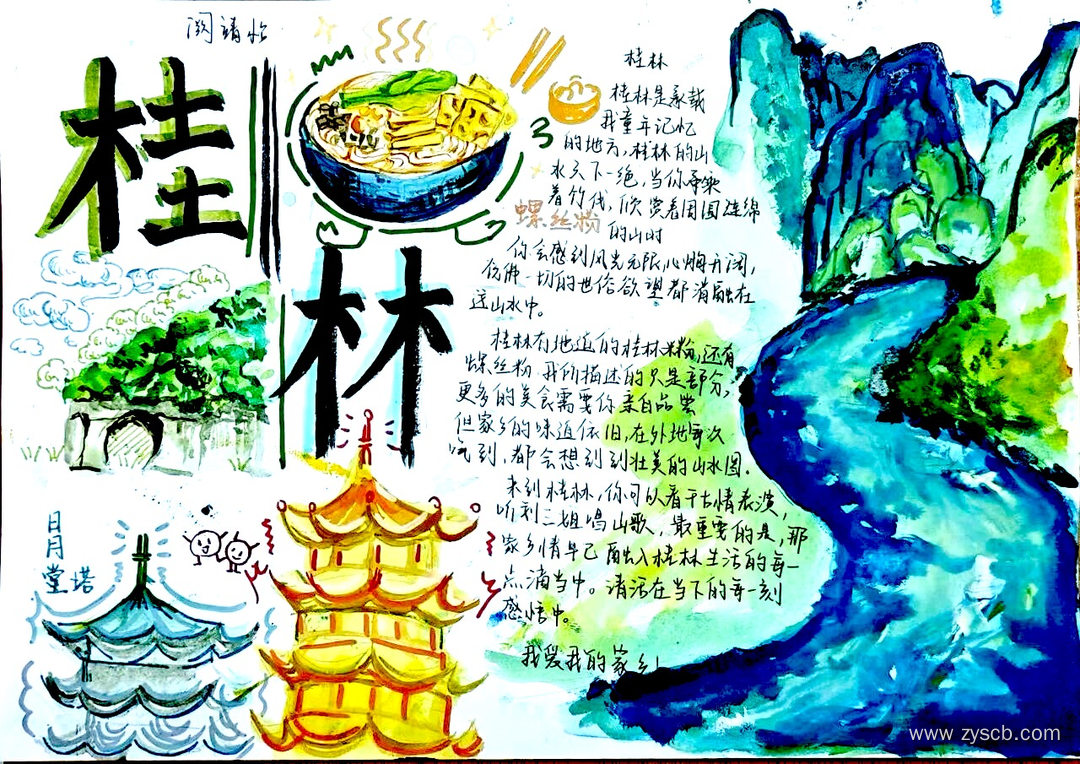 阙靖怡
桂
林
螺丝粉
日月
堂塔
桂林
桂林是承载
我童年记忆
的地方,桂林的山
水天下一绝,当你乘
着竹伐,欣赏着团团连绵
的山时
你会感到风光无限,心胸开阔,
仿佛一切的世俗欲望都消融在
这山水中。
桂林有地道的桂林米粉,还有
螺丝粉 我所描述的只是部分,
更多的美食需要你亲自品尝
但家乡的味道依旧,在外地每次
吃到,都会想到到壮美的山水图.
来到桂林,你可以看千古情表演,
听刘三姐唱山歌,最重要的是,那
家乡情早已融入桂林生活的每一
点滴当中。请活在当下的每一刻
感悟中。
我爱我的家乡!
www.zyscb.com